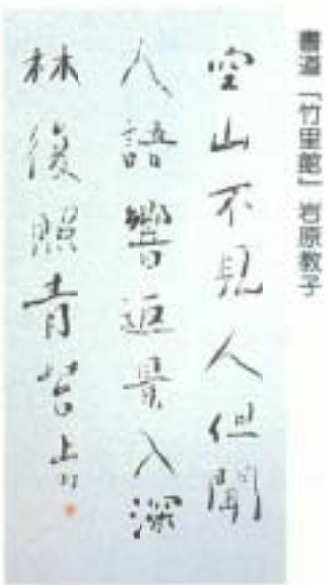 書道 「竹里館」 岩原教子
空山不見人但聞
人語響返景入深
林復照青苔上